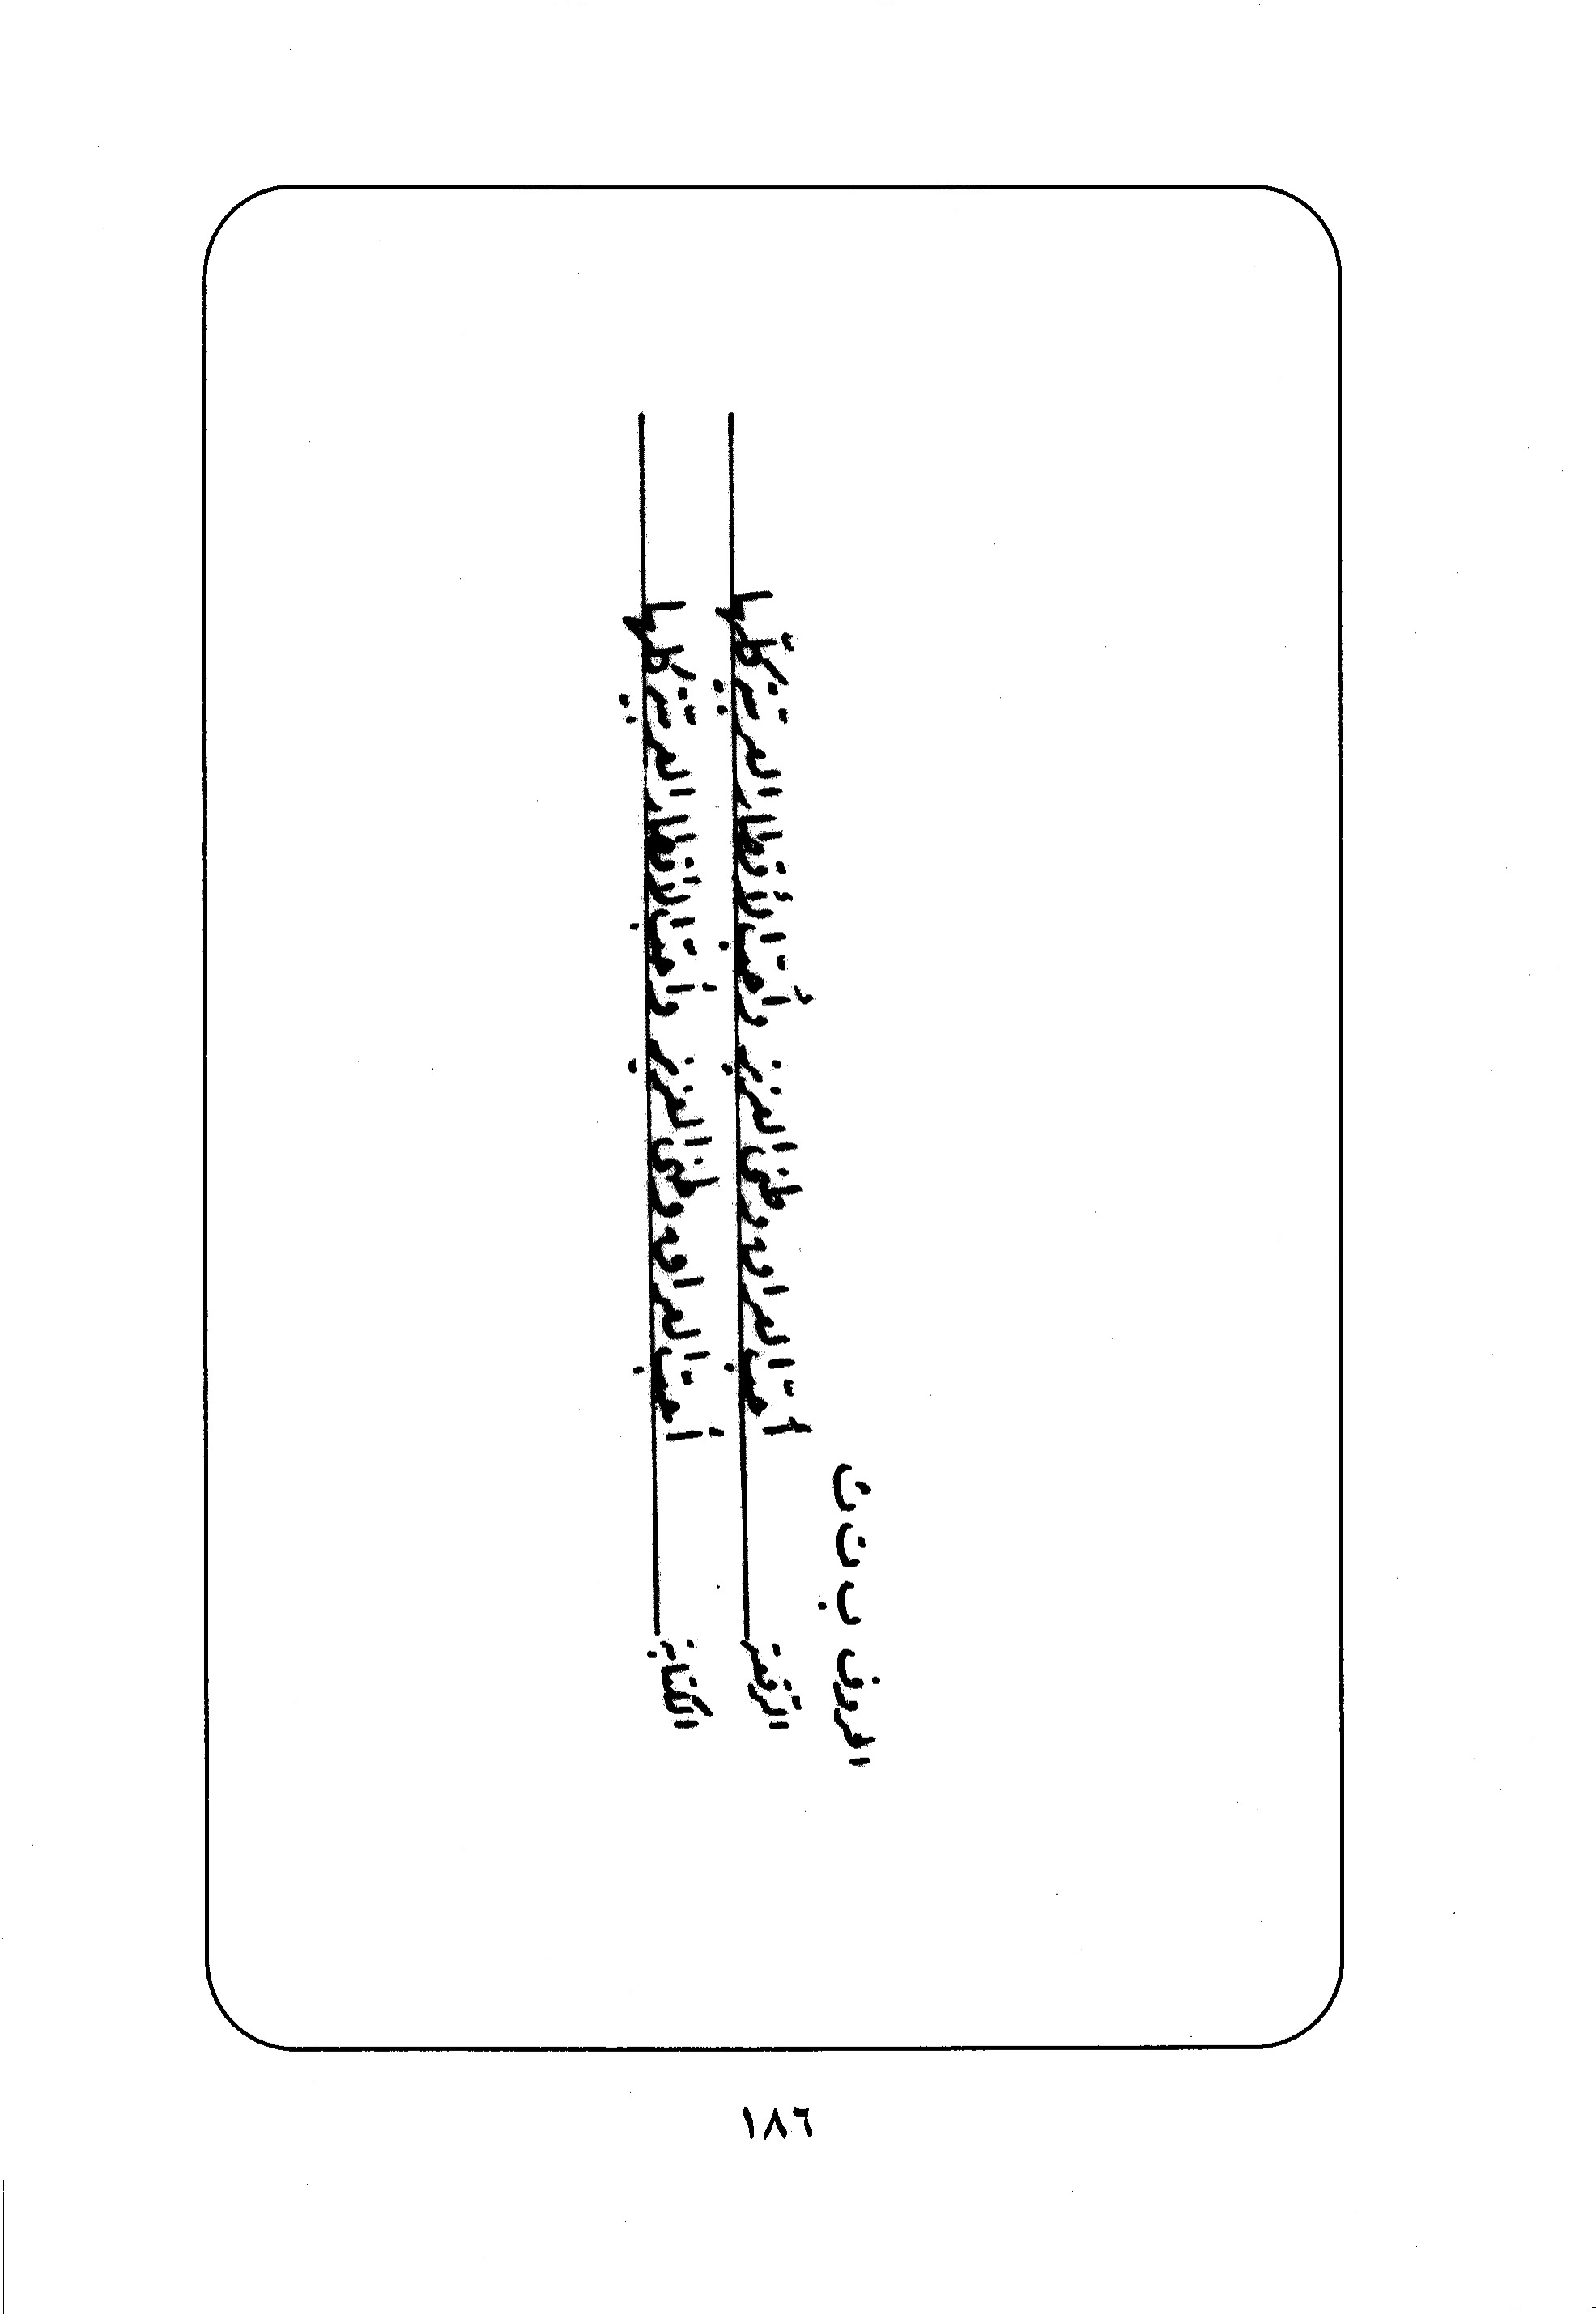 الحروف ب ت ث
الرقعة أحبّ العراق وطني العزيز وأحبّ الأقطار العربية كلّها
الكتابة أحبّ العراق وطني العزيز وأحبّ الاقطار العربية كلها
١٨٦